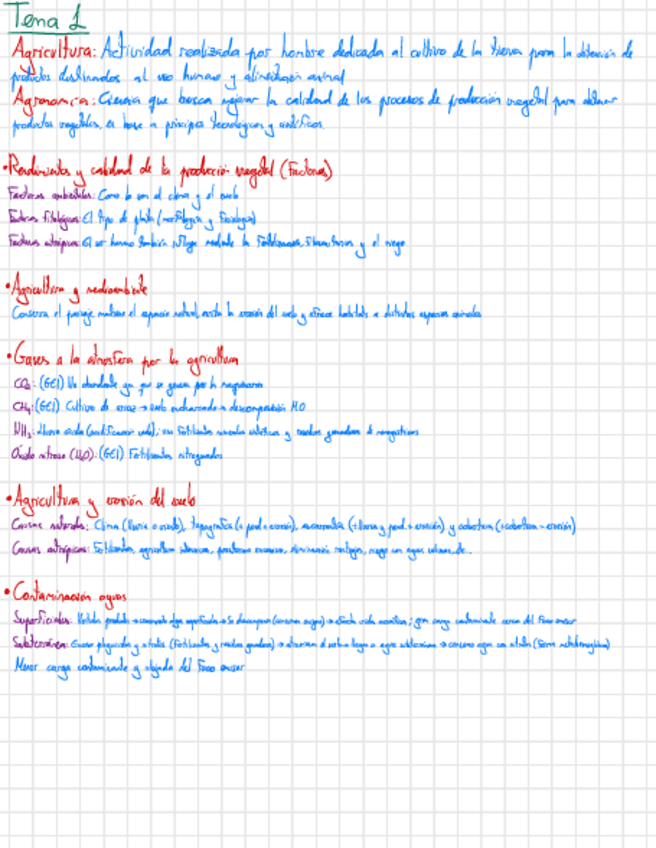 Tema 1
Agricultura: Actividad realizada por hombre dedicada al cultivo de la tierra para la obtención de
productos destinados al uso humano y alimentación animal
Agronomía: Ciencia que busca mejorar la calidad de los procesos de producción vegetal para obtener
productos vegetales, en base a principios tecnológicos y científicos.
•Rendimientos y calidad de la producción vegetal (Factores)
Factores ambientales: Como lo son el clima y el suelo
Factores fitológicos: El tipo de planta (morfología y fisiología)
Factores antrópicos: El ser humano también influye mediante la fertilizantes, fitosanitarios y el riego
•Agricultura y medioambiente
Conserva el paisaje, mantiene el espacio natural, evita la erosión del suelo y ofrece hábitats a distintas especies animales
•Gases a la atmosfera por la agricultura
CO2: (GEI) Un abundante gas que se genera por la maquinaria
CH4: (GEI) Cultivo de arroz → suelo encharcado → descomposición M.O
NH3: lluvia ácida (acidificación suelo);
Oxido nitroso (N2O): (GEI) Fertilizantes nitrogenados
•Agricultura y erosión del suelo
Causas naturales: Clima (lluvia o viento), topografía (+ pend + erosión), escorrentía (+ lluvia y pend. + erosión) y cobertura (+ cobertura - erosión)
Causas antrópicas: Fertilizantes, agricultura intensiva, pastoreo excesivo, eliminación rastrojos, riego con aguas
•Contaminación aguas
Superficiales: → → se descompone (consume oxígeno) → afecta vida acuática; gran carga contaminante cerca del foco emisor
Subterránea: (Fertilizantes y residuos ganaderos) →
Menor carga contaminante y alejada del foco emisor